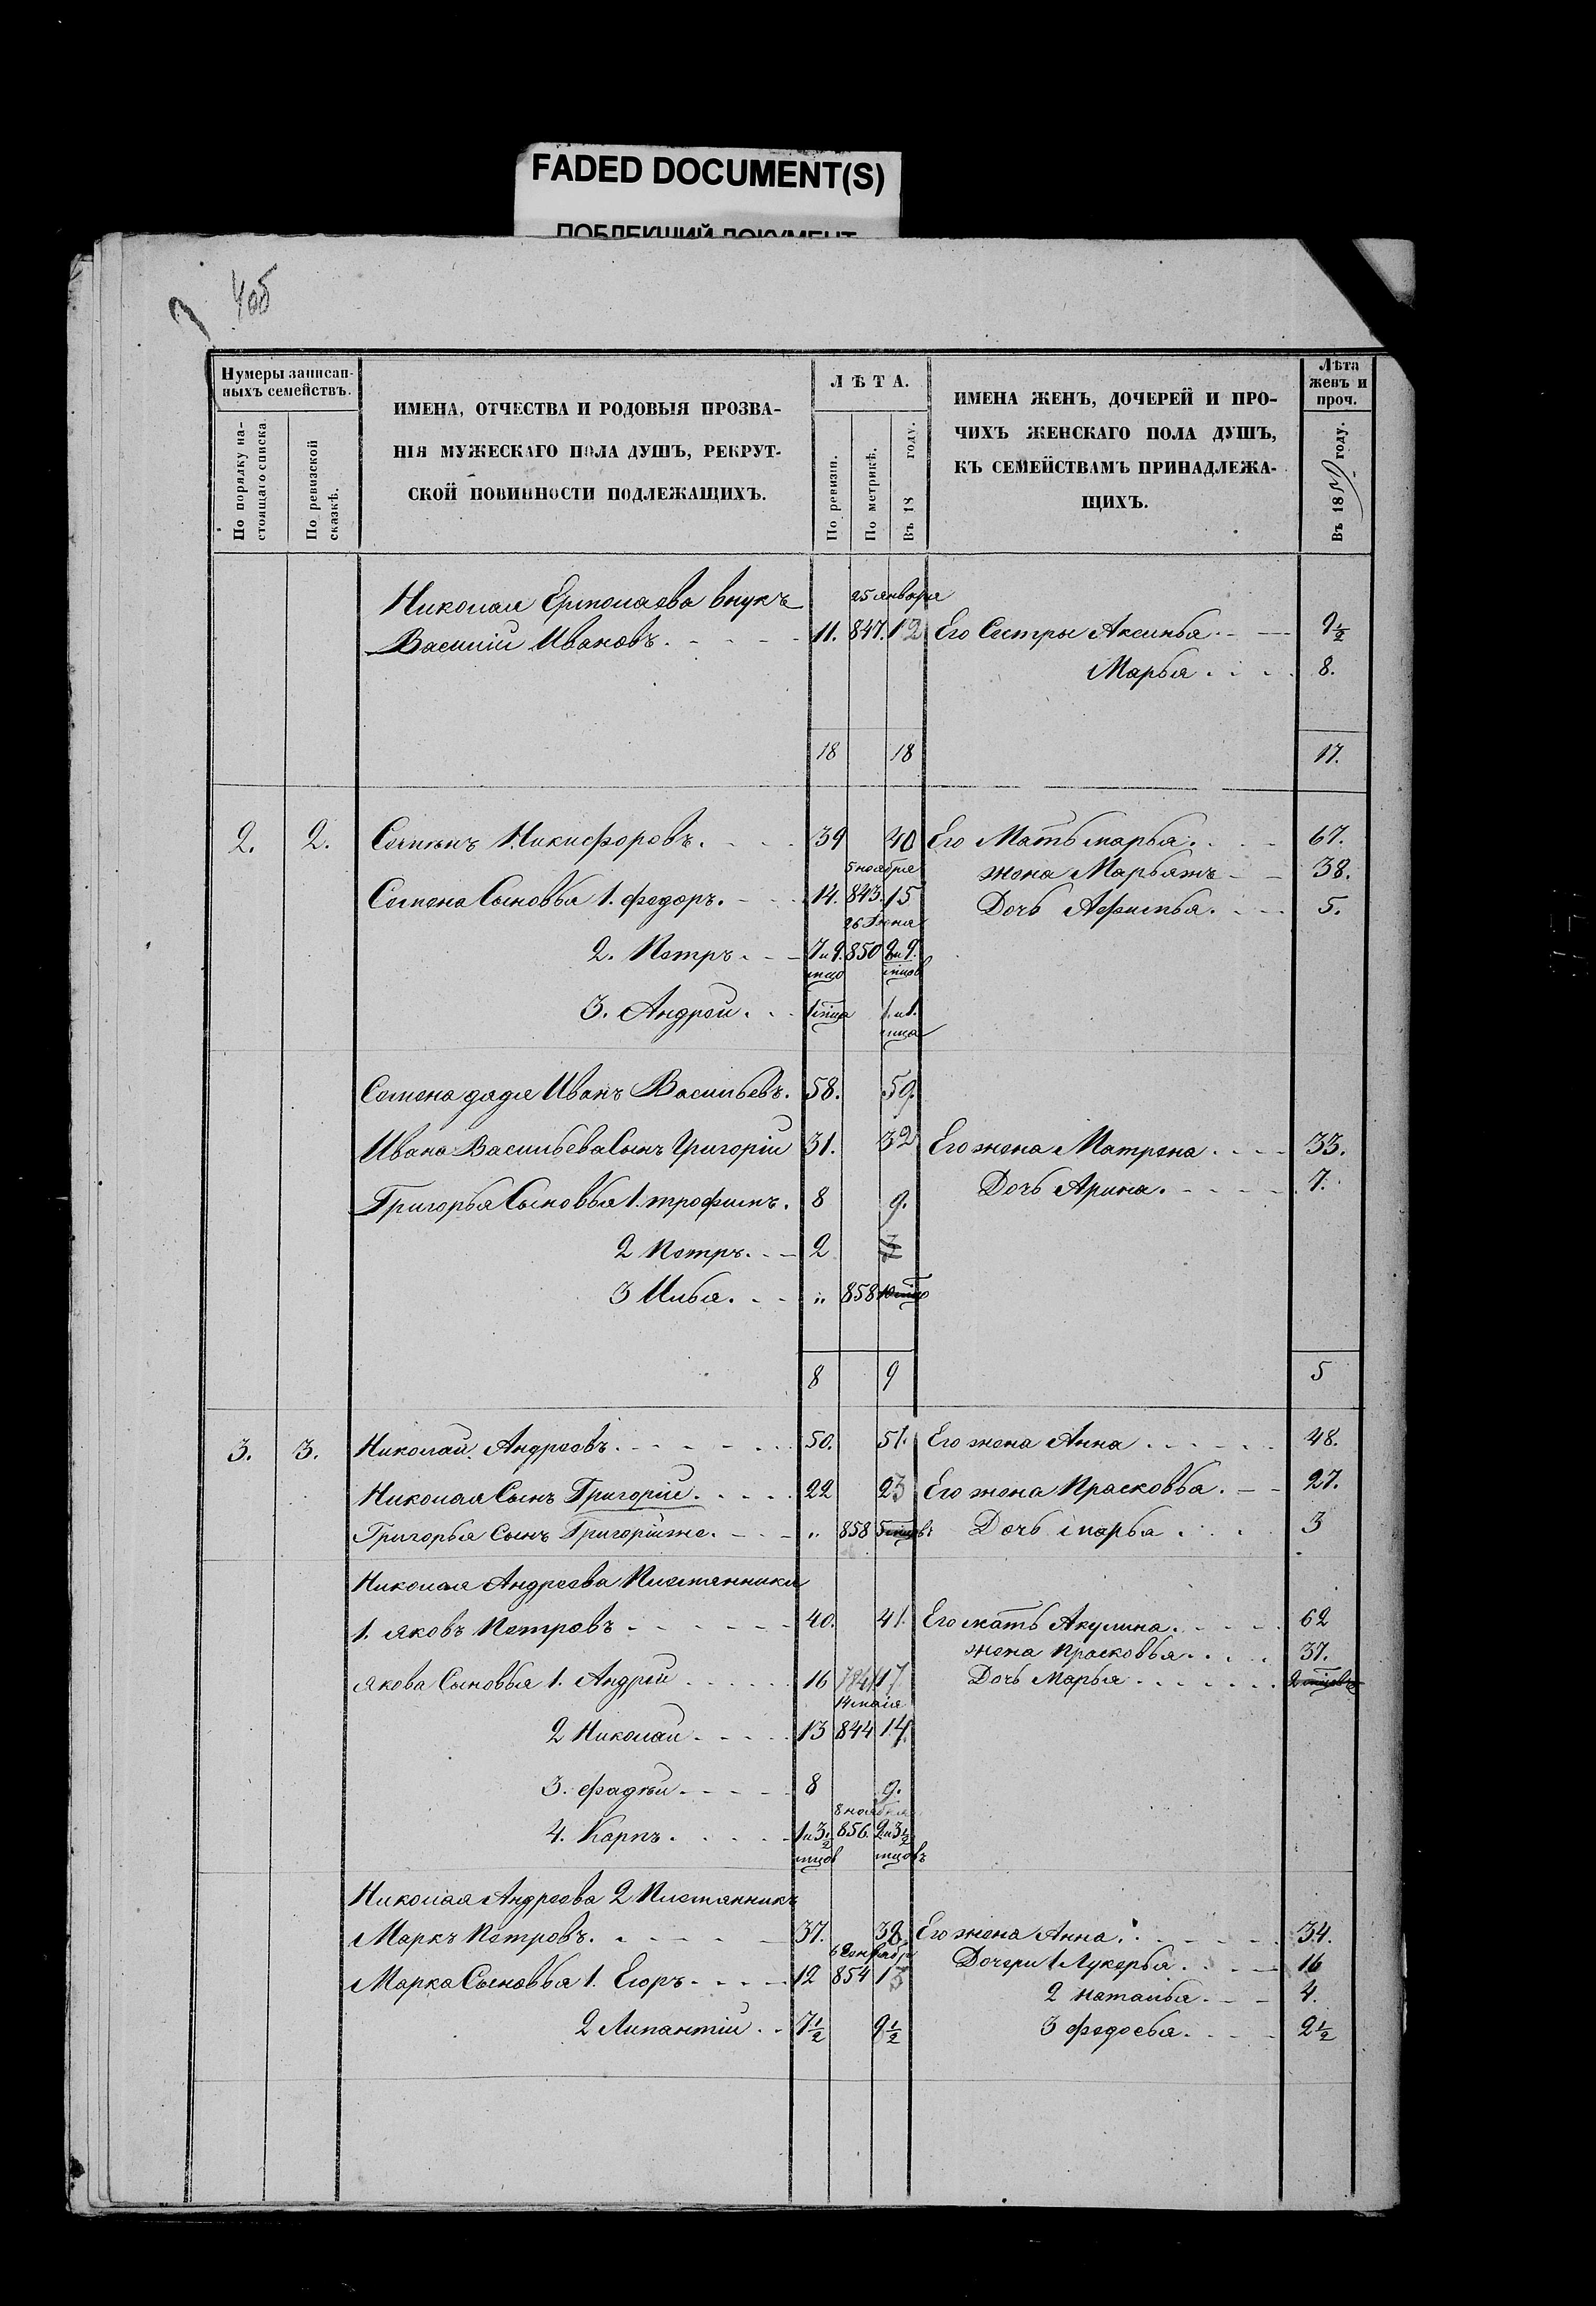 FADED DOCUMENT(S)
ПОБЛЕКШИЙ ДОКУМЕНТ
4об
Нумеры записан-
ныхъ семействъ.
По порядку на-
стоящаго списка.
По ревизской
сказкѣ.
ИМЕНА, ОТЧЕСТВА И РОДОВЫЯ ПРОЗВА-
НІЯ МУЖЕСКАГО ПОЛА ДУШЪ, РЕКРУТ-
СКОЙ ПОВИННОСТИ ПОДЛЕЖАЩИХЪ.
ЛѢТА.
По ревизіи.
По метрикѣ.
Въ 18 году.
ИМЕНА ЖЕНЪ, ДОЧЕРЕЙ И ПРО-
ЧИХЪ ЖЕНСКАГО ПОЛА ДУШЪ,
КЪ СЕМЕЙСТВАМЪ ПРИНАДЛЕЖА-
ЩИХЪ.
Лѣта
женъ и
проч.
Въ 18 году.
Николая Ермолаева внукъ 25 января
Василій Ивановъ. 11. 847. 12 Его Сестры Аксинья. 9½
Марья. 8.
18 18 17.
2. 2. Семенъ Никифоровъ. 39 40 Его Мать марья. 67.
5 ноября жена Марьяжъ 38.
Семена Сыновья 1. федоръ. 14. 843. 15 Дочь Афимья. 5.
26 Іюня
2. Петръ. 7 и 9. 850 9.
мцо мцов
3. Андрей. 1 мца 1. и 1.
мца
Семена дядя Иванъ Васильевъ. 58. 59.
Ивана Васильева Сынъ Григорій 31. 32 Его жена Матрена 33.
Дочь Арина. 7.
Григорья Сыновья 1. трофимъ. 8 9.
2 Петръ. 2 3
3 Илья. " 858 10 мцо
8 9 5
3. 3. Николай Андреевъ. 50. 51. Его жена Анна 48.
Николая Сынъ Григорій. 22 23 Его жена Прасковья. 27.
Григорья Сынъ Григорійже. " 858 5 мцовъ Дочь марья 3
Николая Андреева Племянники
1. яковъ Петровъ 40. 41. Его мать Акулина. 62
жена прасковья. 37.
якова Сыновья 1. Андрей 16 841 17 Дочь Марья 2 мцовъ
14 мая
2 Николай 13 844 14.
3. фадѣй 8 9.
8 ноября
4. Карпъ. 1 и 3½ 856. 2 и 3½
мцов мцовъ
Николая Андреева 2 Племянникъ
Маркъ Петровъ. 37. 38. Его жена Анна. 34.
Дочери 1 Лукерья. 16
Марка Сыновья 1. Егоръ 12 854 13
2 наталья. 4.
2 Липантій 7½ 9½ 3 федосья. 2½